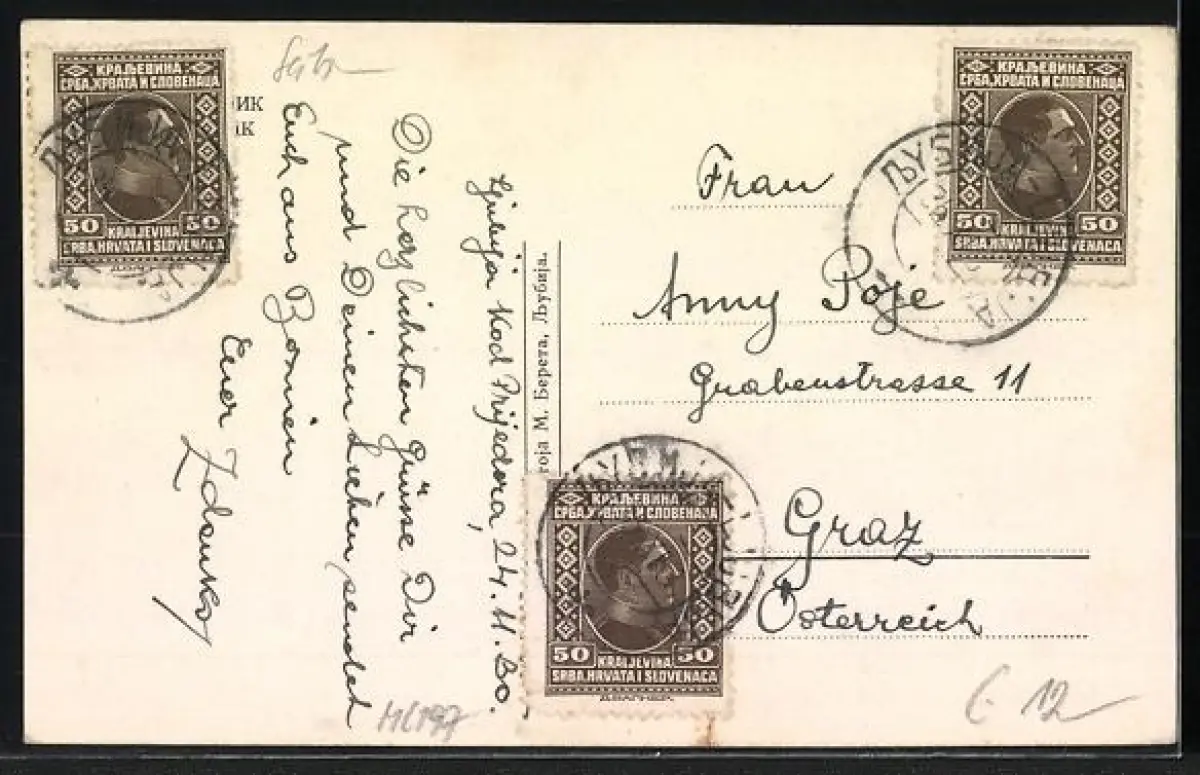 КРАЉЕВИНА
СРБА, ХРВАТА И СЛОВЕНАЦА
50 50
KRALJEVINA
SRBA, HRVATA I SLOVENACA
Ljubija kod Prijedora, 24.11.30.
Die herzlichsten Grüsse Dir
und Deinen Lieben sendet
Euch aus Bosnien
Euer Zdenko
М. Берета, Љубија.
КРАЉЕВИНА
СРБА, ХРВАТА И СЛОВЕНАЦА
50 50
KRALJEVINA
SRBA, HRVATA I SLOVENACA
КРАЉЕВИНА
СРБА, ХРВАТА И СЛОВЕНАЦА
50 50
KRALJEVINA
SRBA, HRVATA I SLOVENACA
Frau
Anny Poje
Grabenstrasse 11
Graz
Österreich
12